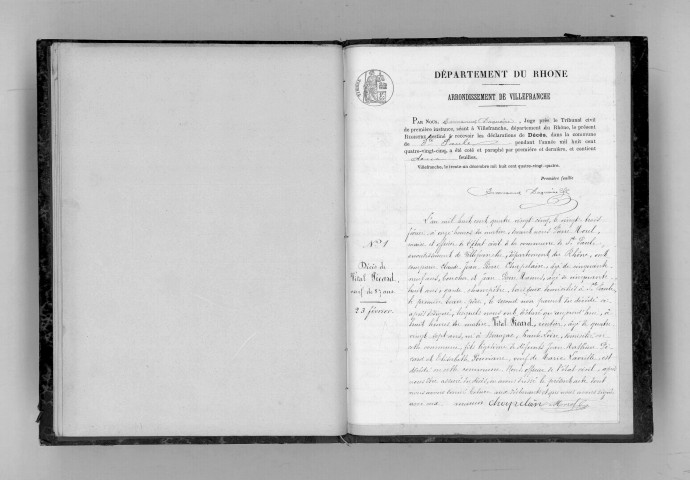 DÉPARTEMENT DU RHONE
ARRONDISSEMENT DE VILLEFRANCHE
PAR NOUS, Juge près le Tribunal civil
de première instance, séant à Villefranche, département du Rhône, le présent
REGISTRE destiné à recevoir les déclarations de Décès, dans la commune
de Ste Paule pendant l'année mil huit cent
quatre-vingt-cinq, a été coté et paraphé par première et dernière, et contient
feuilles.
Villefranche, le trente un décembre mil huit cent quatre-vingt-quatre.
Première feuille
N° 1
Décès de
Vital Picard,
veuf, de 87 ans
23 février
L'an mil huit cent quatre vingt cinq, le vingt trois
février à onze heures du matin, devant nous
maire et officier de l'état civil de la commune de Ste Paule,
arrondissement de Villefranche, département du Rhône, ont
comparu Claude Jean Pierre Cherpelain, âgé de cinquante
neuf ans, et Jean Pierre âgé de cinquante
huit ans, garde champêtre, tous deux domiciliés à Ste Paule,
le premier le second non parent du décédé ci
après désigné, lesquels nous ont déclaré qu'aujourd'hui, à
huit heures du matin, Vital Picard, rentier, âgé de quatre
vingt sept ans, né à domicilié en
cette commune, fils légitime de défunts Jean Mathieu Pi
card et Elisabeth veuf de Marie est
décédé en cette commune. Nous officier de l'état civil, après
nous être assuré du décès, en avons dressé le présent acte dont
nous avons donné lecture aux déclarants et que nous avons signé
avec eux. cherpelain